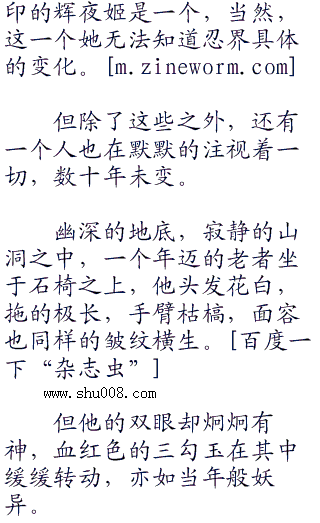 印的辉夜姬是一个，当然，
这一个她无法知道忍界具体
的变化。[m.zineworm.com]
但除了这些之外，还有
一个人也在默默的注视着一
切，数十年未变。
幽深的地底，寂静的山
洞之中，一个年迈的老者坐
于石椅之上，他头发花白，
拖的极长，手臂枯槁，面容
也同样的皱纹横生。[百度一
下“杂志虫”]
www.shu008.com
但他的双眼却炯炯有
神，血红色的三勾玉在其中
缓缓转动，亦如当年般妖
异。